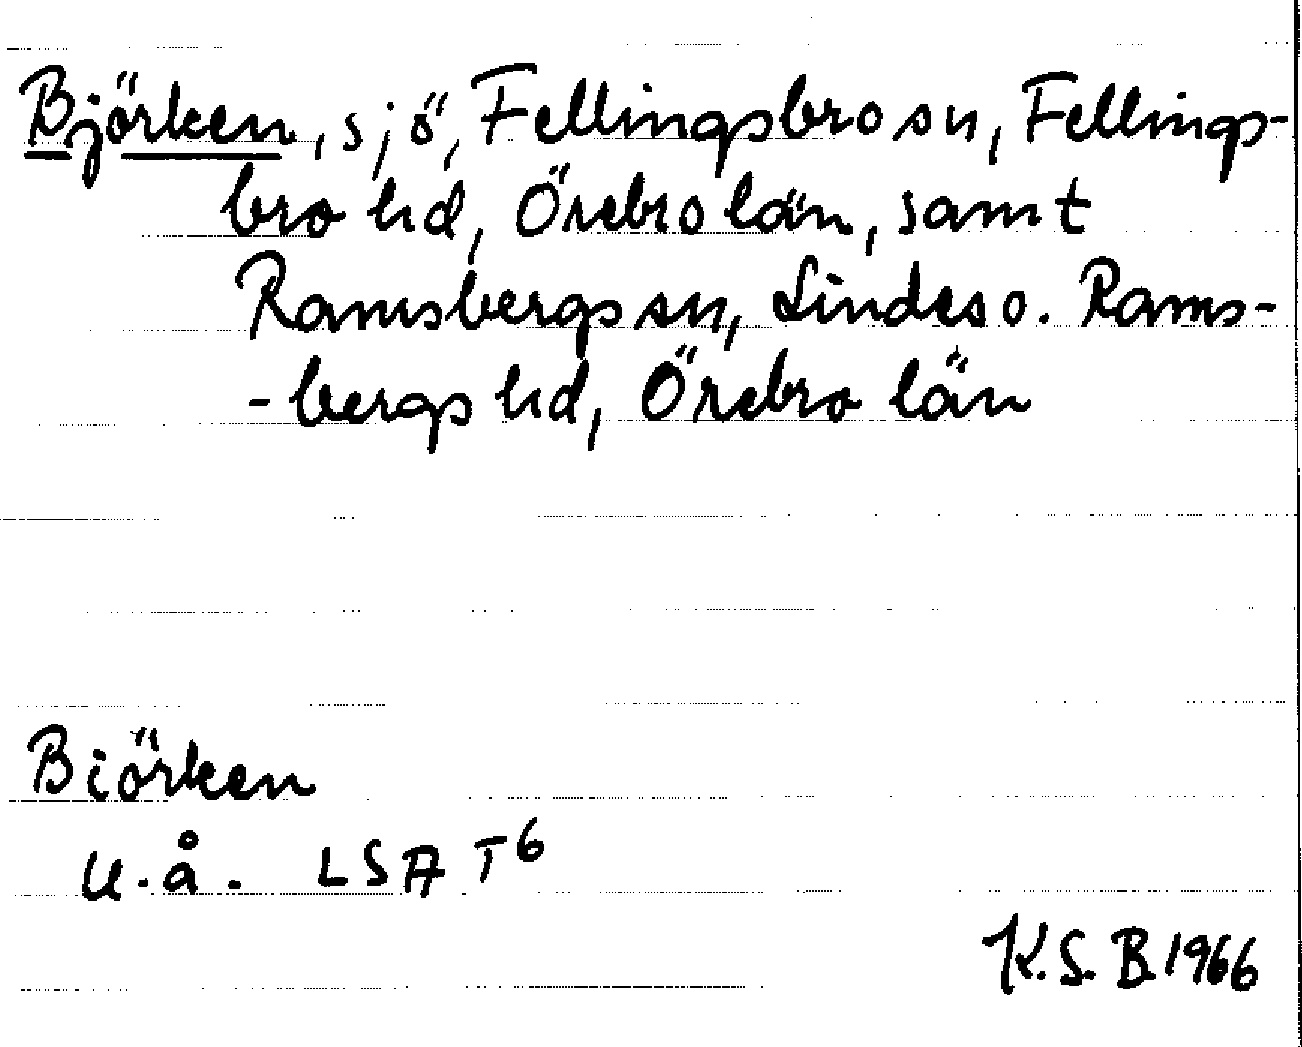 Björken, sjö, Fellingsbro sn, Fellings-
bro hd, Örebro län, samt
Ramsbergs sn, Lindes o. Rams-
-bergs hd, Örebro län
Biörken
U.å. LSA T6
K.S.B. 1966